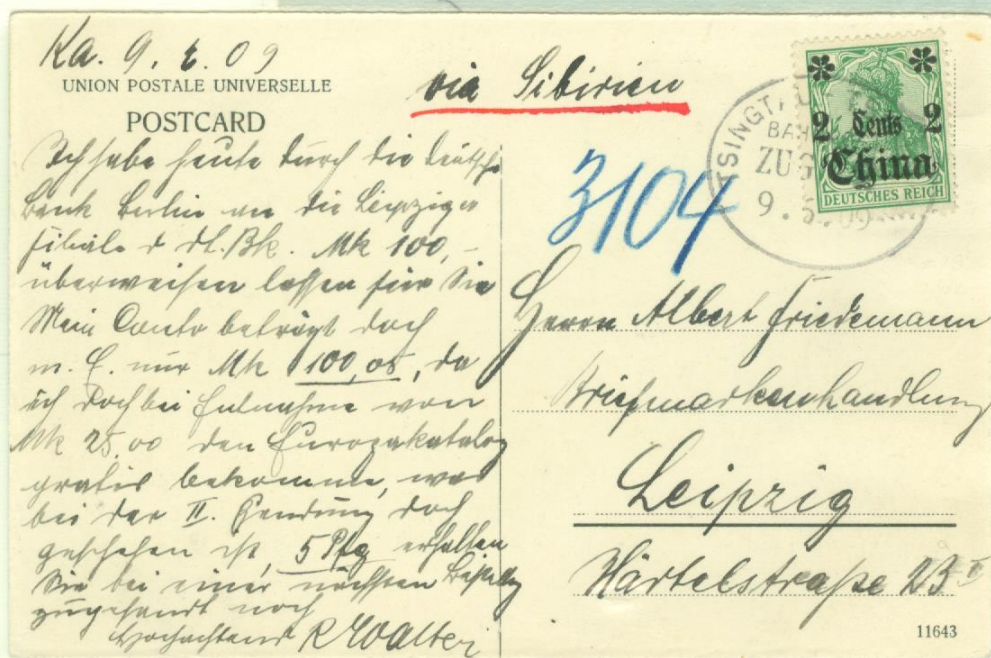 Ka. 9. 09
UNION POSTALE UNIVERSELLE
POSTCARD
via Sibirien
Ich habe heute durch die Deutsche
Bank Berlin an die Leipziger
Filiale d. dt. Bk. Mk 100,-
überweisen lassen für Sie
Mein Conto beträgt doch
m. E. nur Mk 100,05, da
ich doch bei Entnahme von
Mk 25.00 den Europakatalog
gratis bekomme, was
bei der II. Sendung doch
geschehen ist, 5 Pfg erhalten
Sie bei einer nächsten
zugesandt noch
Hochachtend R Walter
3104
TSINGTAU
BAHN
ZUG
9. 09
2 Cents 2
China
DEUTSCHES REICH
Herrn Albert Friedemann
Briefmarkenhandlung
Leipzig
Härtelstraße 23
11643